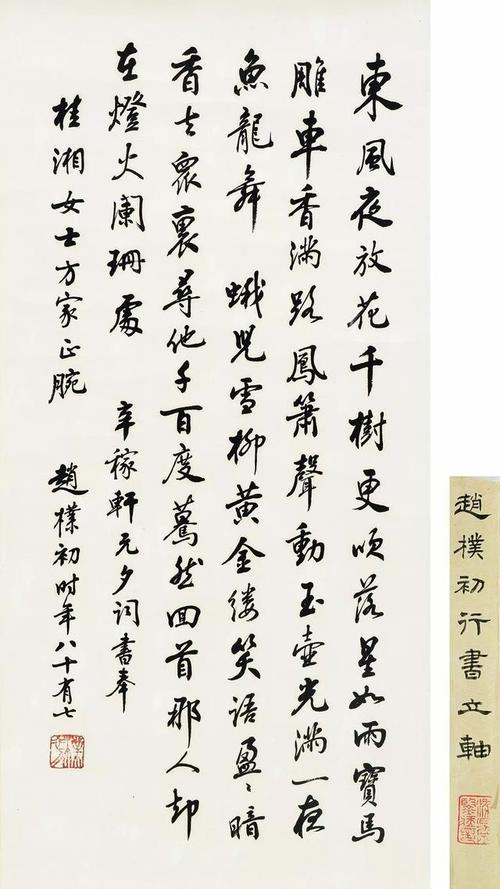 東風夜放花千樹更吹落星如雨寶馬
雕車香滿路鳳簫聲動玉壺光滿一夜
魚龍舞 蛾兒雪柳黃金縷笑語盈〻暗
香去眾裏尋他千百度驀然回首那人却
在燈火闌珊處 辛稼軒元夕詞書奉
桂湘女士方家正腕 趙樸初时年八十有七
趙樸初行書立軸